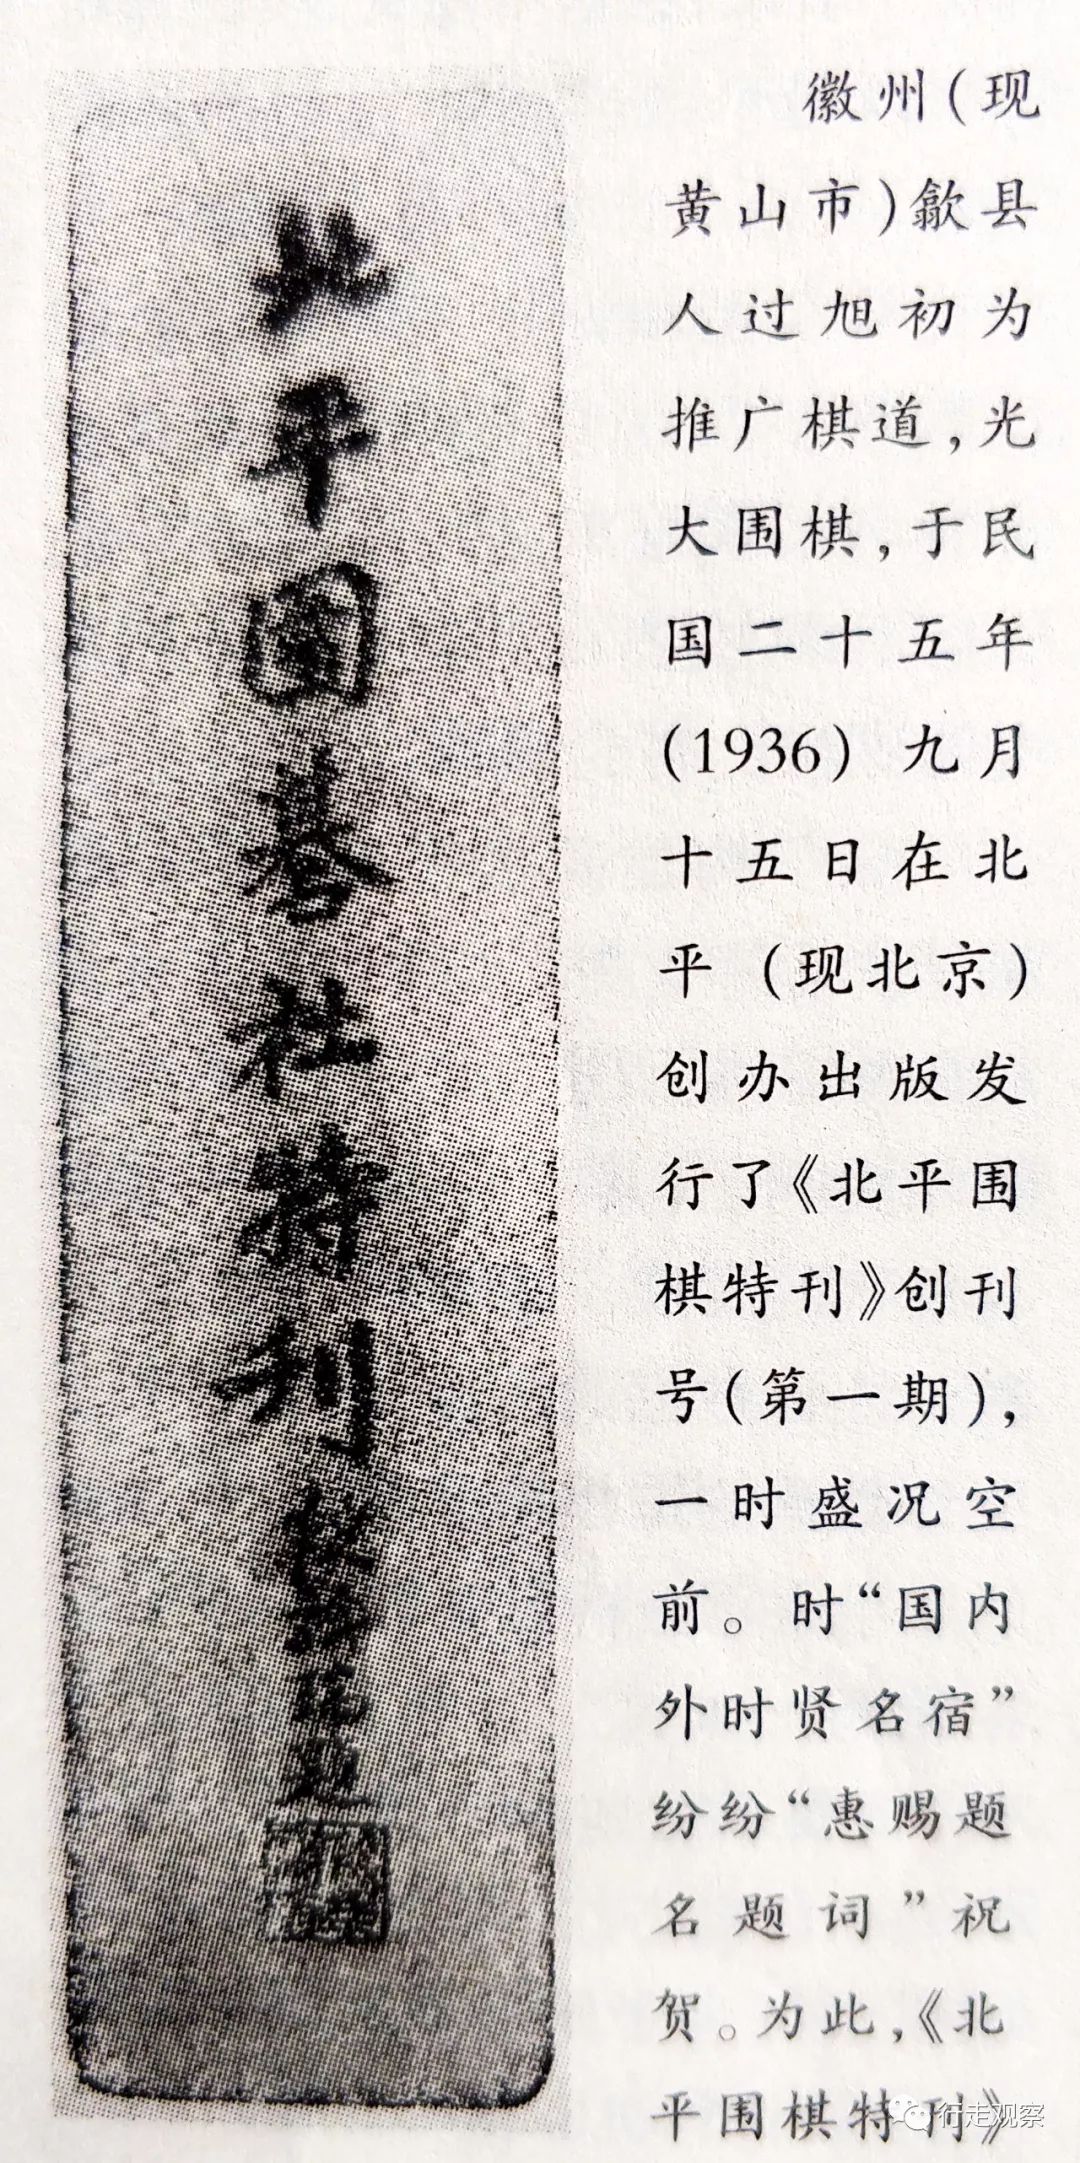 北平圍碁社特刊
題
徽州(现
黄山市)歙县
人过旭初为
推广棋道,光
大围棋,于民
国二十五年
(1936)九月
十五日在北
平(现北京)
创办出版发
行了《北平围
棋特刊》创刊
号(第一期),
一时盛况空
前。时“国内
外时贤名宿”
纷纷“惠赐题
名题词”祝
贺。为此,《北
平围棋特刊》
行走观察